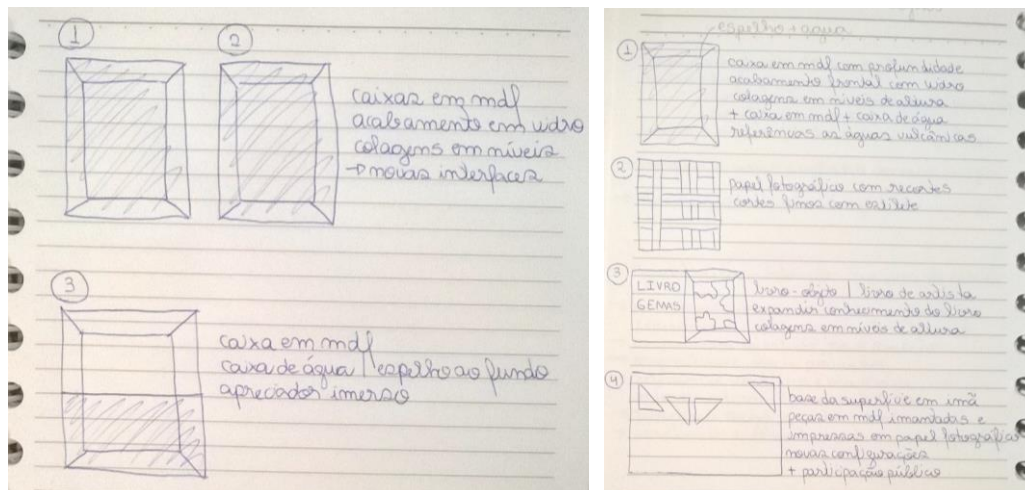 1
2
caixas em mdf
acabamento em vidro
colagens em níveis
→ novas interfaces
3
caixa em mdf
caixa de água | espelho ao fundo
apreciador imerso
espelho + agua
1
caixa em mdf com profundidade
acabamento frontal com vidro
colagens em níveis de altura
+ caixa em mdf + caixa de água
referências as águas vulcânicas
2
papel fotográfico com recortes
cortes finos com estilete
3
LIVRO
GEMAS
livro-objeto | livro de artista
expandir conhecimento do livro
colagens em níveis de altura
4
base da superfície em imã
peças em mdf imantadas e
impressas em papel fotográfico
novas configurações
+ participação público